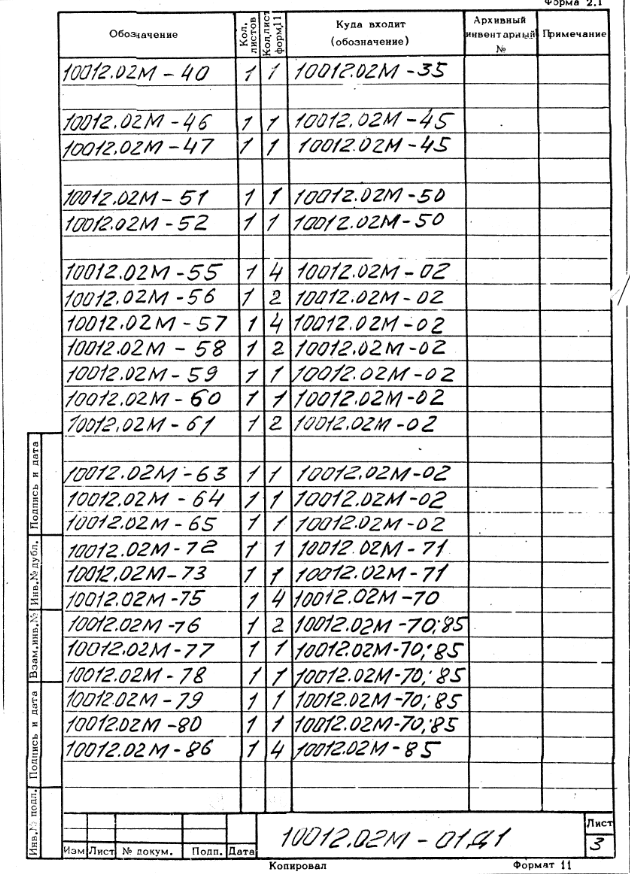 Форма 2.1
Обозначение Кол. листов Кол.лист форм.11 Куда входит (обозначение) Архивный инвентарный № Примечание
10012.02М - 40 1 1 10012.02М - 35
10012.02М - 46 1 1 10012.02М - 45
10012.02М - 47 1 1 10012.02М - 45
10012.02М - 51 1 1 10012.02М - 50
10012.02М - 52 1 1 10012.02М - 50
10012.02М - 55 1 4 10012.02М - 02
10012.02М - 56 1 2 10012.02М - 02
10012.02М - 57 1 4 10012.02М - 02
10012.02М - 58 1 2 10012.02М - 02
10012.02М - 59 1 1 10012.02М - 02
10012.02М - 60 1 1 10012.02М - 02
10012.02М - 61 1 2 10012.02М - 02
10012.02М - 63 1 1 10012.02М - 02
10012.02М - 64 1 1 10012.02М - 02
10012.02М - 65 1 1 10012.02М - 02
10012.02М - 72 1 1 10012.02М - 71
10012.02М - 73 1 1 10012.02М - 71
10012.02М - 75 1 4 10012.02М - 70
10012.02М - 76 1 2 10012.02М - 70; 85
10012.02М - 77 1 1 10012.02М - 70; 85
10012.02М - 78 1 1 10012.02М - 70; 85
10012.02М - 79 1 1 10012.02М - 70; 85
10012.02М - 80 1 1 10012.02М - 70; 85
10012.02М - 86 1 4 10012.02М - 85
Подпись и дата
Инв.№ дубл.
Взам.инв.№
Подпись и дата
Инв.№ подл.
Изм Лист № докум. Подп. Дата
10012.02М - 01Д1
Лист
3
Копировал Формат 11